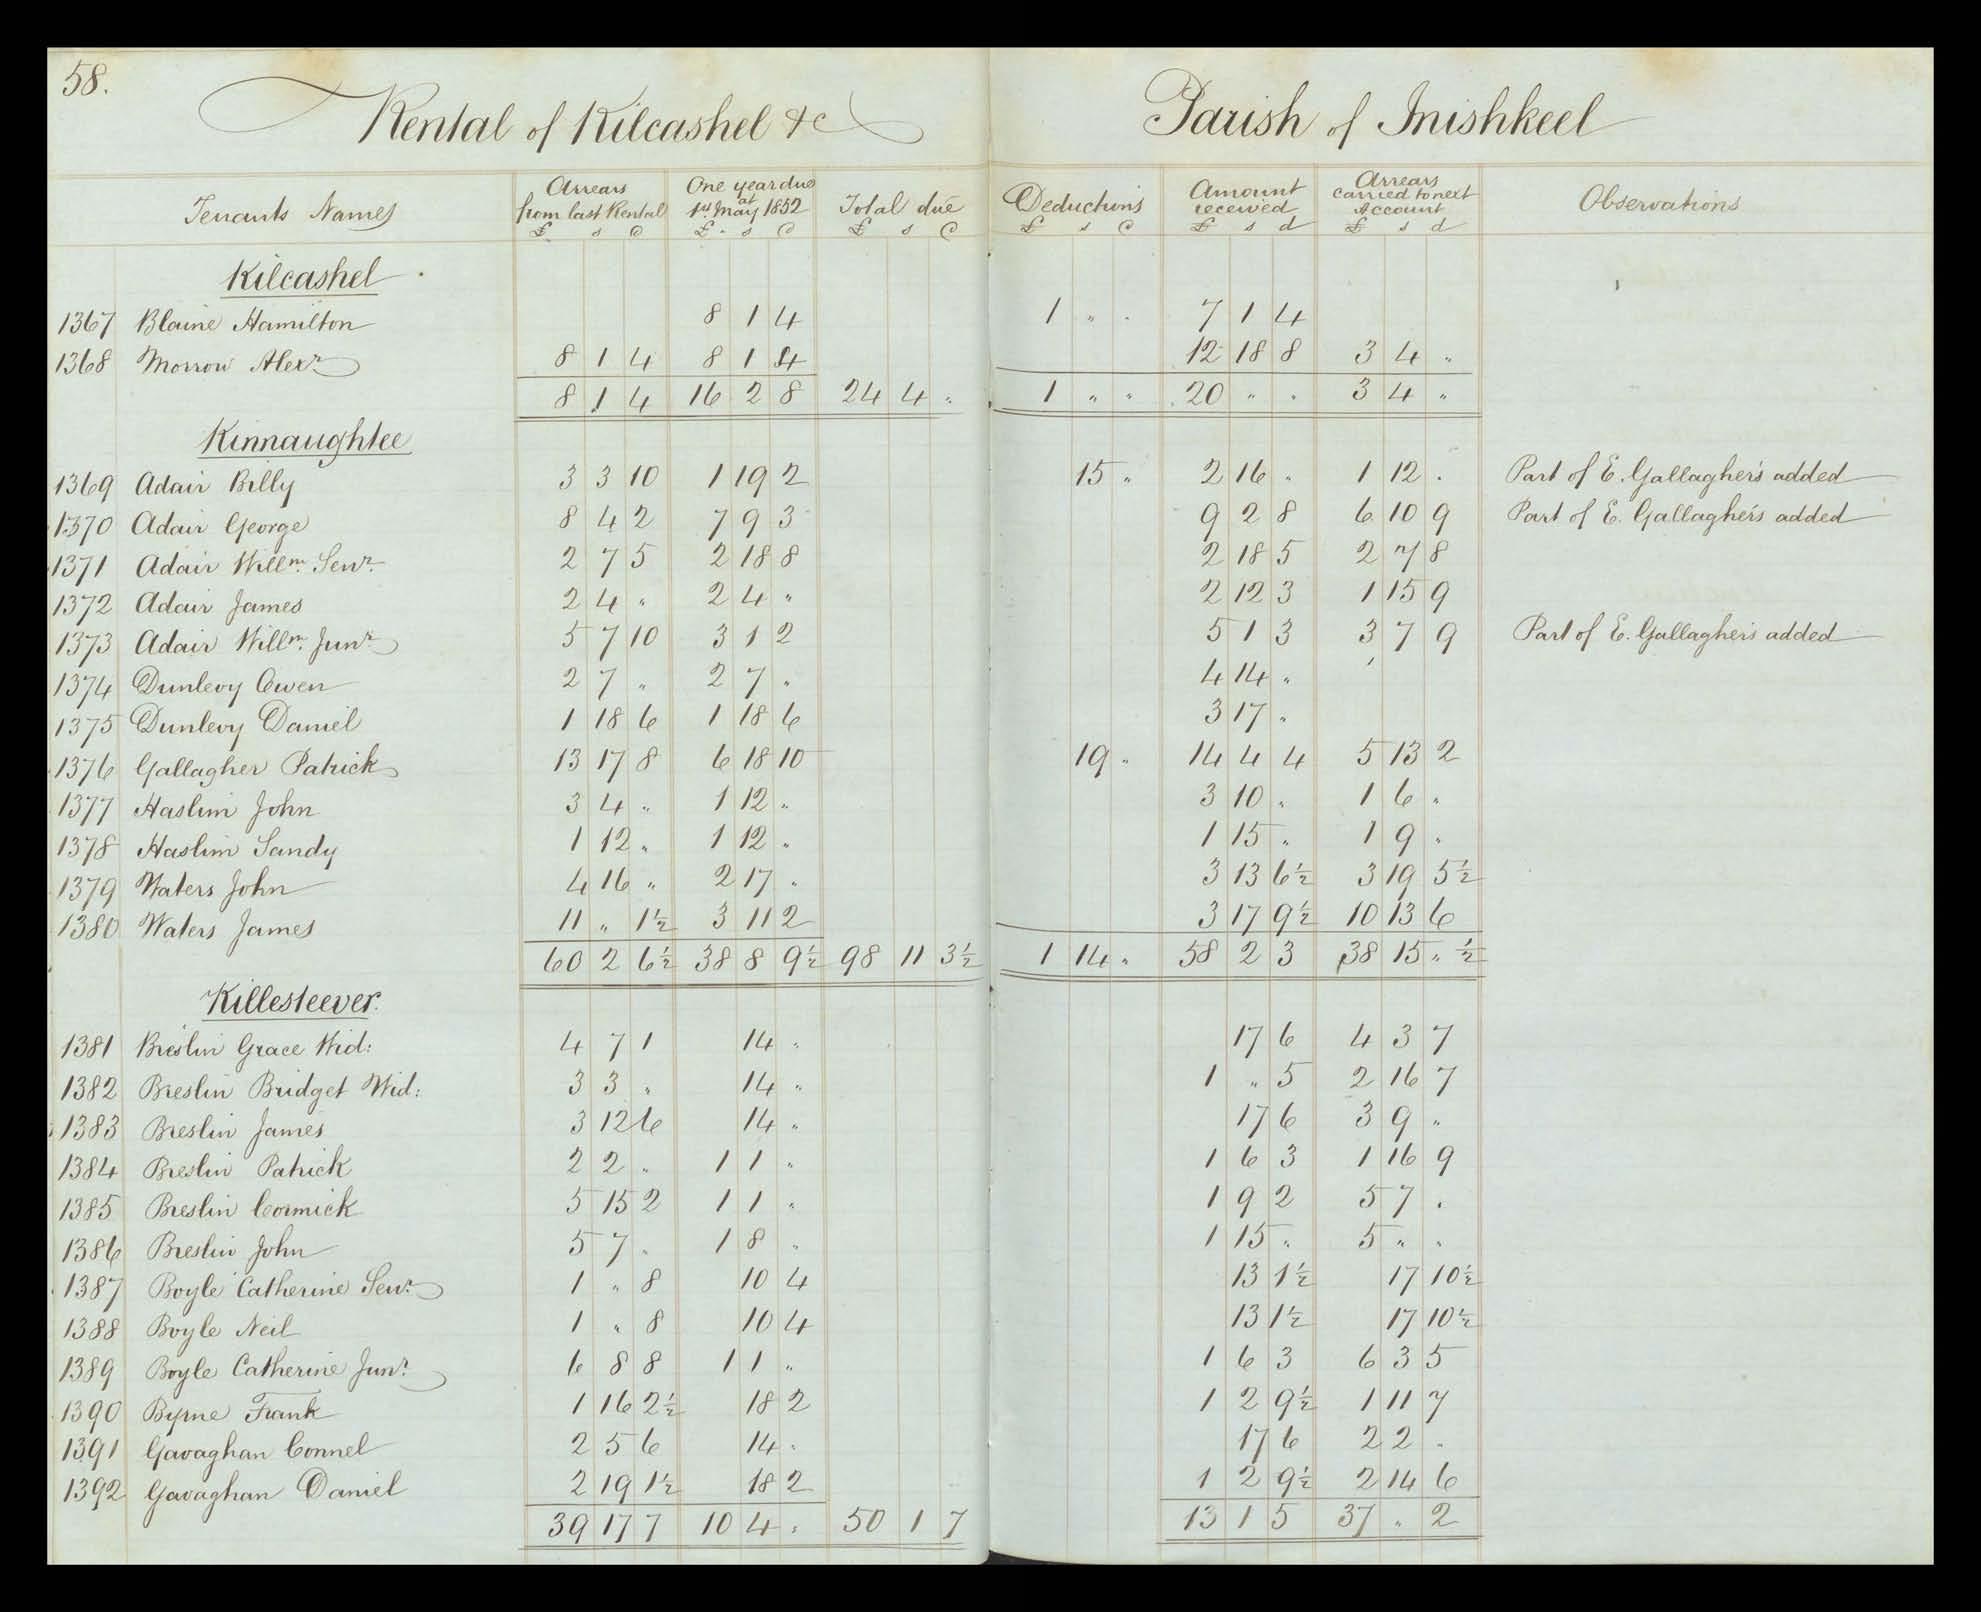 58.
Rental of Kilcashel &c Parish of Inishkeel
Tenants Names Arrears from last Rental £ s d One year due at 1st May 1852 £ s d Total due £ s d Deductions £ s d Amount received £ s d Arrears carried to next Account £ s d Observations
Kilcashel
1367 Blaine Hamilton 8 1 4 1 " " 7 1 4
1368 Morrow Alexr 8 1 4 8 1 4 12 18 8 3 4 "
8 1 4 16 2 8 24 4 " 1 " " 20 " " 3 4 "
Kinnaughtee
1369 Adair Billy 3 3 10 1 19 2 15 " 2 16 " 1 12 " Part of E. Gallagher's added
1370 Adair George 8 4 2 7 9 3 9 2 8 6 10 9 Part of E. Gallagher's added
1371 Adair Willm. Senr. 2 7 5 2 18 8 2 18 5 2 7 8
1372 Adair James 2 4 " 2 4 " 2 12 3 1 15 9
1373 Adair Willm. Junr. 5 7 10 3 1 2 5 1 3 3 7 9 Part of E. Gallagher's added
1374 Dunlevy Owen 2 7 " 2 7 " 4 14 "
1375 Dunlevy Daniel 1 18 6 1 18 6 3 17 "
1376 Gallagher Patrick 13 17 8 6 18 10 19 " 14 4 4 5 13 2
1377 Haslim John 3 4 " 1 12 " 3 10 " 1 6 "
1378 Haslim Sandy 1 12 " 1 12 " 1 15 " 1 9 "
1379 Waters John 4 16 " 2 17 " 3 13 6½ 3 19 5½
1380 Waters James 11 " 1½ 3 11 2 3 17 9½ 10 13 6
60 2 6½ 38 8 9½ 98 11 3½ 1 14 " 58 2 3 38 15 " ½
Killesteever.
1381 Breslin Grace Wid: 4 7 1 14 " 17 6 4 3 7
1382 Breslin Bridget Wid: 3 3 " 14 " 1 " 5 2 16 7
1383 Breslin James 3 12 6 14 " 17 6 3 9 "
1384 Breslin Patrick 2 2 " 1 1 " 1 6 3 1 16 9
1385 Breslin Cormick 5 15 2 1 1 " 1 9 2 5 7 "
1386 Breslin John 5 7 " 1 8 " 1 15 " 5 " "
1387 Boyle Catherine Senr. 1 " 8 10 4 13 1½ 17 10½
1388 Boyle Neil 1 " 8 10 4 13 1½ 17 10½
1389 Boyle Catherine Junr. 6 8 8 1 1 " 1 6 3 6 3 5
1390 Byrne Frank 1 16 2½ 18 2 1 2 9½ 1 11 7
1391 Gavaghan Connel 2 5 6 14 " 17 6 2 2 "
1392 Gavaghan Daniel 2 19 1½ 18 2 1 2 9½ 2 14 6
39 17 7 10 4 " 50 1 7 13 1 5 37 " 2